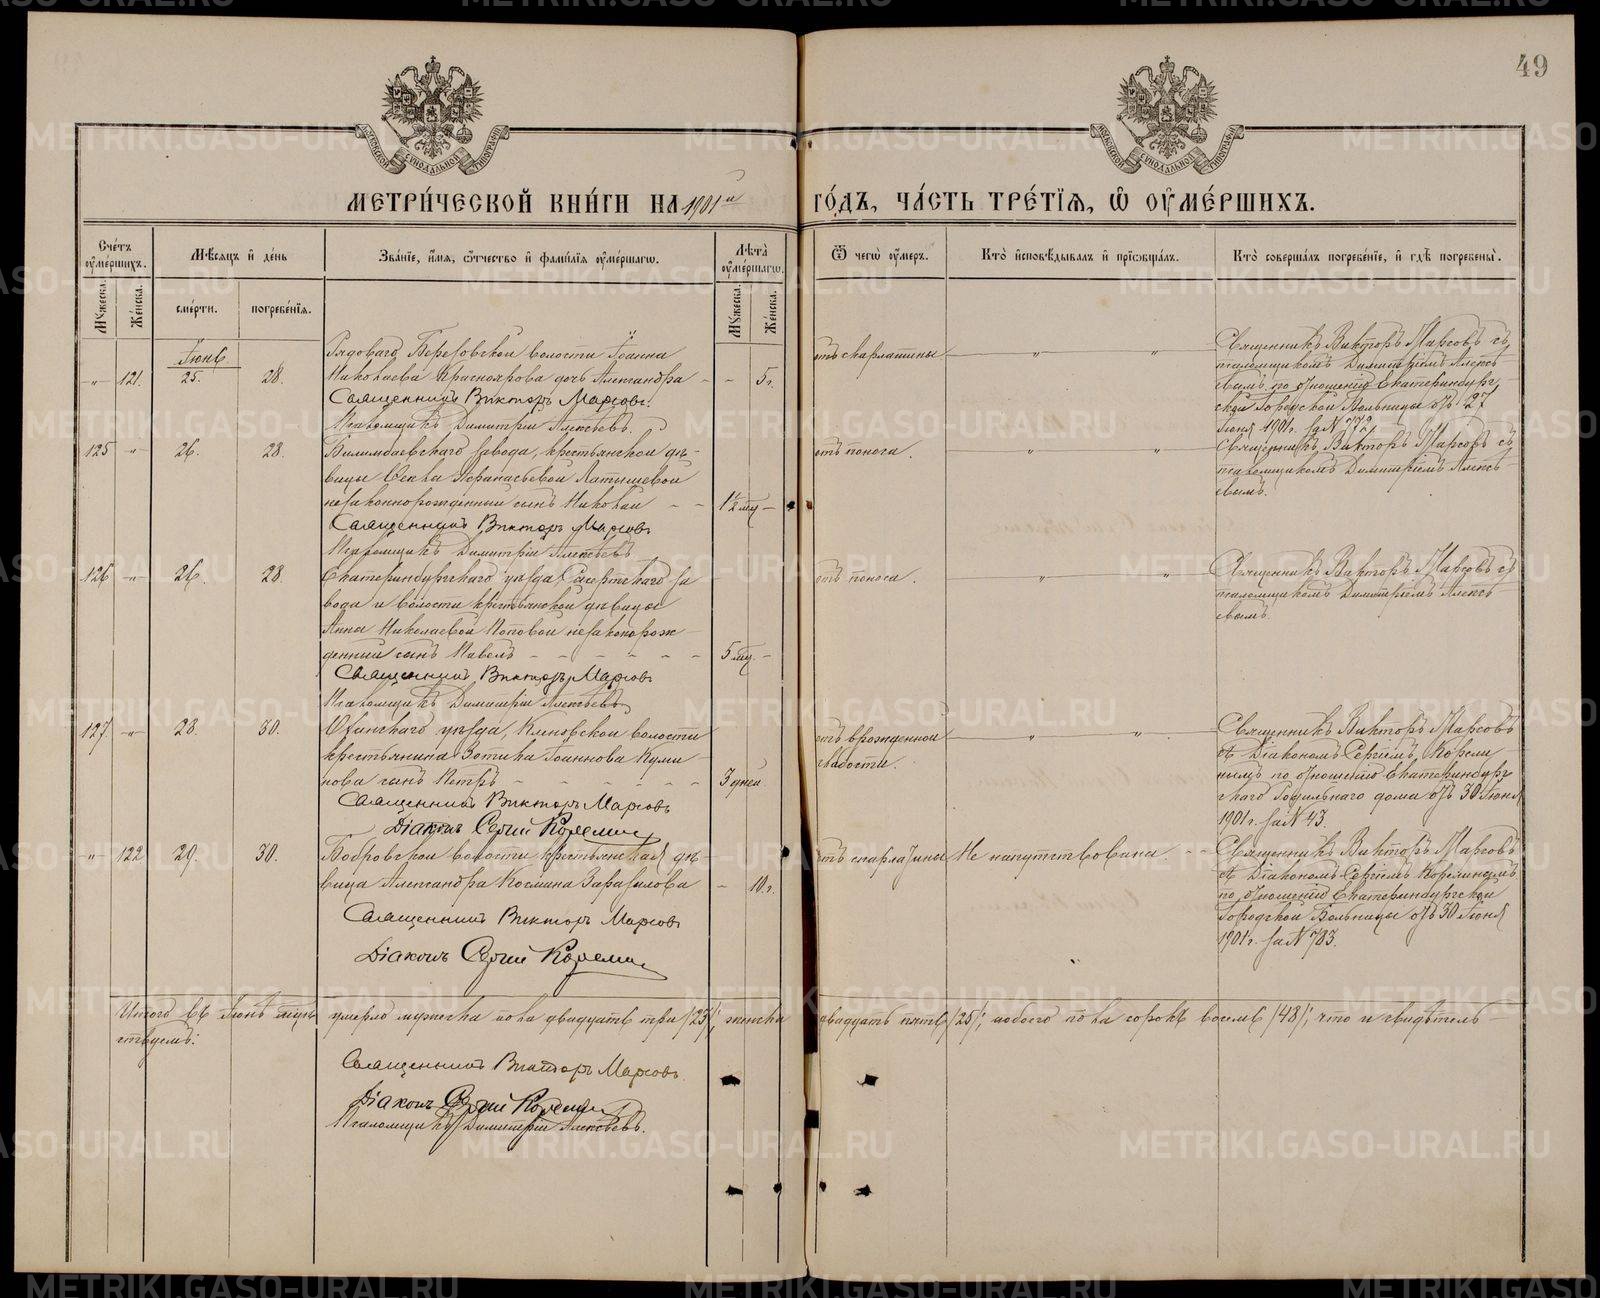 49
МЕТРИ́ЧЕСКОЙ КНИ́ГИ НА 1901й ГО́ДЪ, ЧА́СТЬ ТРЕ́ТІЯ, Ѡ ОУМЕ́РШИХЪ.
Сче́тъ оумершихъ.
Мужеска.
Же́нска.
Мѣсяцъ и день
сме́рти.
погребе́нїя.
Зва́нїе, и́мя, ѻтчество и фами́лїя оуме́ршагѡ.
Лѣта оумершагѡ.
Мужеска.
Же́нска.
Ѿ чегѡ̀ оумеръ.
Кто̀ исповѣдывалъ и прїѡбща́лъ.
Кто̀ соверша́лъ погребе́нїе, и гдѣ погребены̀.
Іюнь
„ 121. 25. 28.
Рядоваго Березовской волости Іоанна
Николаева Красноярова дочь Александра - - 5 г.
Священникъ Викторъ Марсовъ.
Псаломщикъ Димитрій Алексѣевъ.
отъ скарлатины „ „
Священникъ Викторъ Марсовъ съ
псаломщикомъ Димитріемъ Алексѣ-
евымъ по отношенію Екатеринбург-
ской Городской Больницы отъ 27
Іюня 1901 г. за N 772
125 „ 26. 28.
Билимбаевскаго завода, крестьянской дѣ-
вицы Ѳеклы Аѳанасьевой Латышевой
незаконнорожденный сынъ Николай - - 1½ мц -
Священникъ Викторъ Марсовъ
Псаломщикъ Димитрій Алексѣевъ
отъ поноса. „ „
Священникъ Викторъ Марсовъ съ
псаломщикомъ Димитріемъ Алексѣ-
евымъ.
126 „ 26. 28.
Екатеринбургскаго уѣзда, Сысертскаго за
вода и волости крестьянской дѣвицы
Анны Николаевой Поповой незаконорож-
денный сынъ Павелъ - - - - - - 5 мц. -
Священникъ Викторъ Марсовъ
Псаломщикъ Димитрій Алексѣевъ
отъ поноса. „ „
Священникъ Викторъ Марсовъ съ
псаломщикомъ Димитріемъ Алексѣ-
евымъ.
127. „ 28. 30.
уѣзда, Кленовской волости
крестьянина Зотика Іоаннова Кули-
кова сынъ Петръ - - - - - - 3 дней
Священникъ Викторъ Марсовъ
Діаконъ Сергій Корелинъ
отъ врожденной „ „
слабости.
Священникъ Викторъ Марсовъ
съ Діакономъ Сергіемъ Корели
нымъ по отношенію Екатеринбург
скаго Родильнаго дома отъ 30 Іюня
1901 г. за N 43.
„ 122 29. 30.
Бобровской волости крестьянская дѣ-
вица Александра Космина - 10 г.
Священникъ Викторъ Марсовъ
Діаконъ Сергій Корелинъ
отъ скарлатины Не напутствована. - -
Священникъ Викторъ Марсовъ
съ Діакономъ Сергіемъ Корелинымъ
по отношенію Екатеринбургской
Городской Больницы отъ 30 Іюня
1901 г. за N 783.
Итого въ Іюнѣ мцѣ умерло мужеска пола двадцать три /23/, женска двадцать пять /25/, обоего пола сорокъ восемь /48/, что и свидѣтель-
ствуемъ:
Священникъ Викторъ Марсовъ.
Діаконъ Сергій Корелинъ
Псаломщикъ Димитрій Алексѣевъ.
METRIKI.GASO-URAL.RU